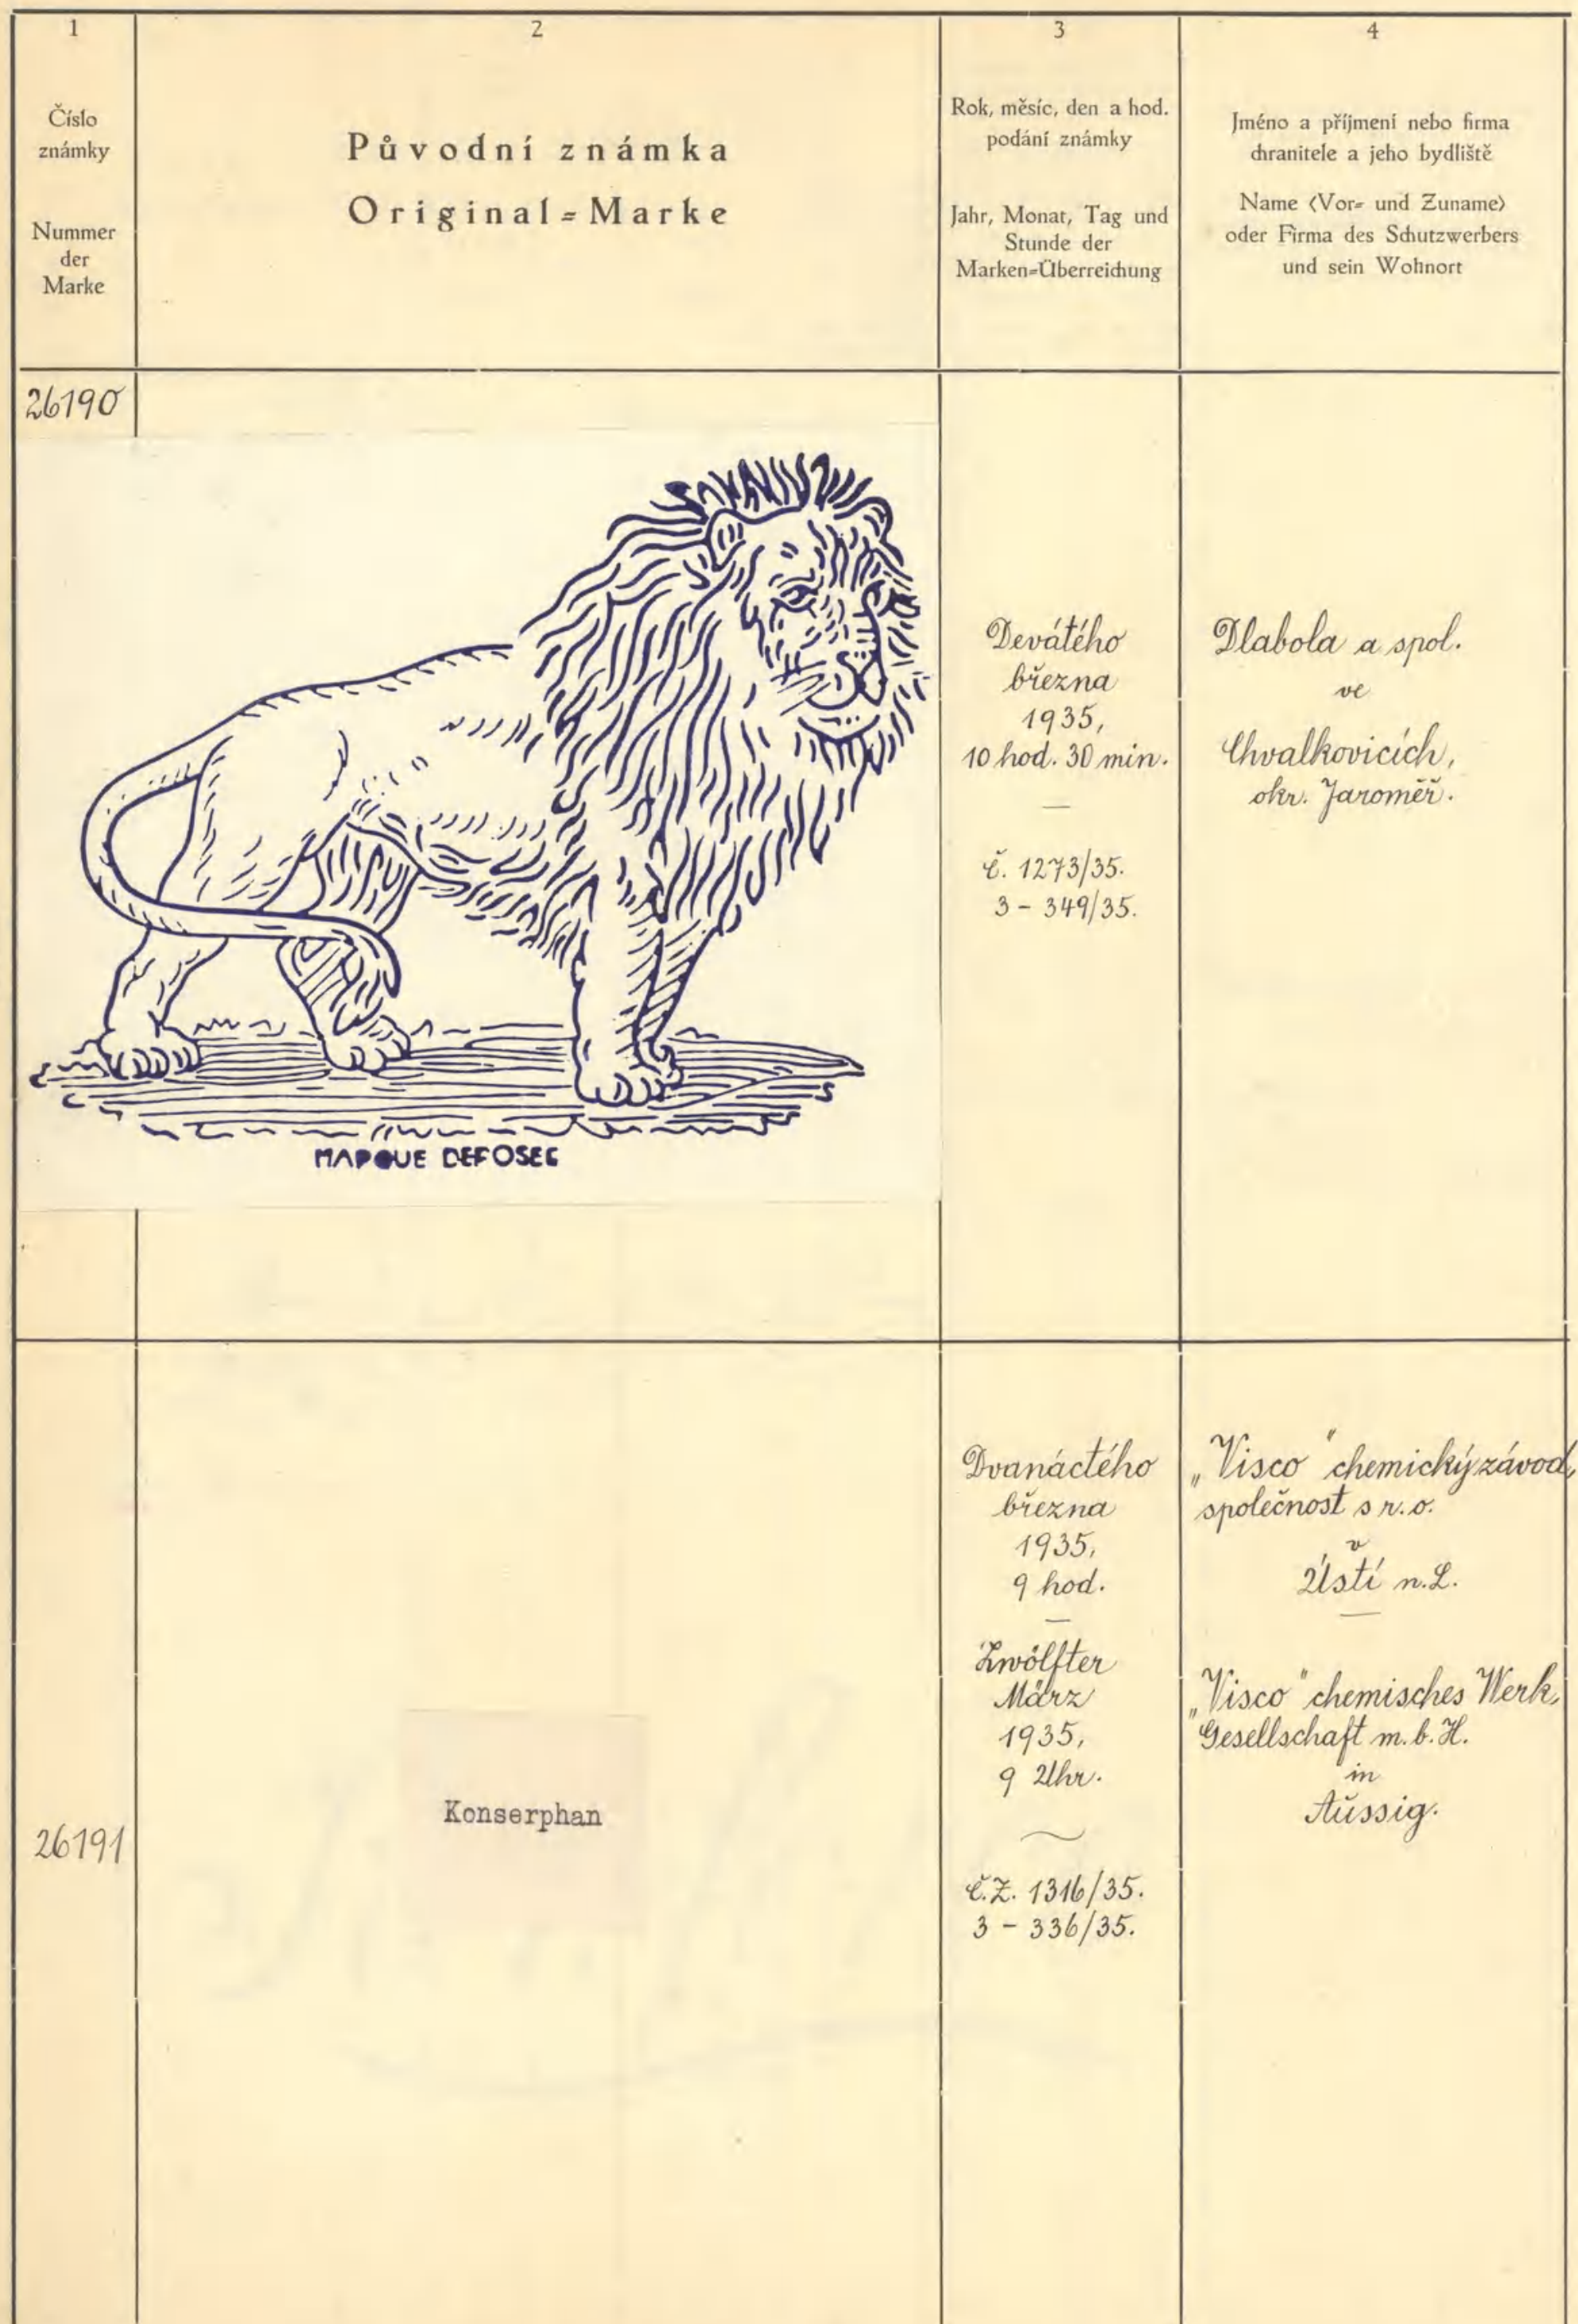 1
Číslo
známky
Nummer
der
Marke
2
Původní známka
Original=Marke
3
Rok, měsíc, den a hod.
podání známky
Jahr, Monat, Tag und
Stunde der
Marken=Überreichung
4
Jméno a příjmení nebo firma
chranitele a jeho bydliště
Name (Vor= und Zuname)
oder Firma des Schutzwerbers
und sein Wohnort
26190
MARQUE DEFOSEE
Devátého
března
1935,
10 hod. 30 min.
—
č. 1273/35.
3 - 349/35.
Dlabola a spol.
ve
Chvalkovicích,
okr. Jaroměř.
26191
Konserphan
Dvanáctého
března
1935,
9 hod.
—
Zwölfter
März
1935,
9 Uhr.
č.Z. 1316/35.
3 - 336/35.
„Visco" chemický závod,
společnost s r.o.
v
Ústí n.L.
—
„Visco" chemisches Werk,
Gesellschaft m.b.H.
in
Aussig.